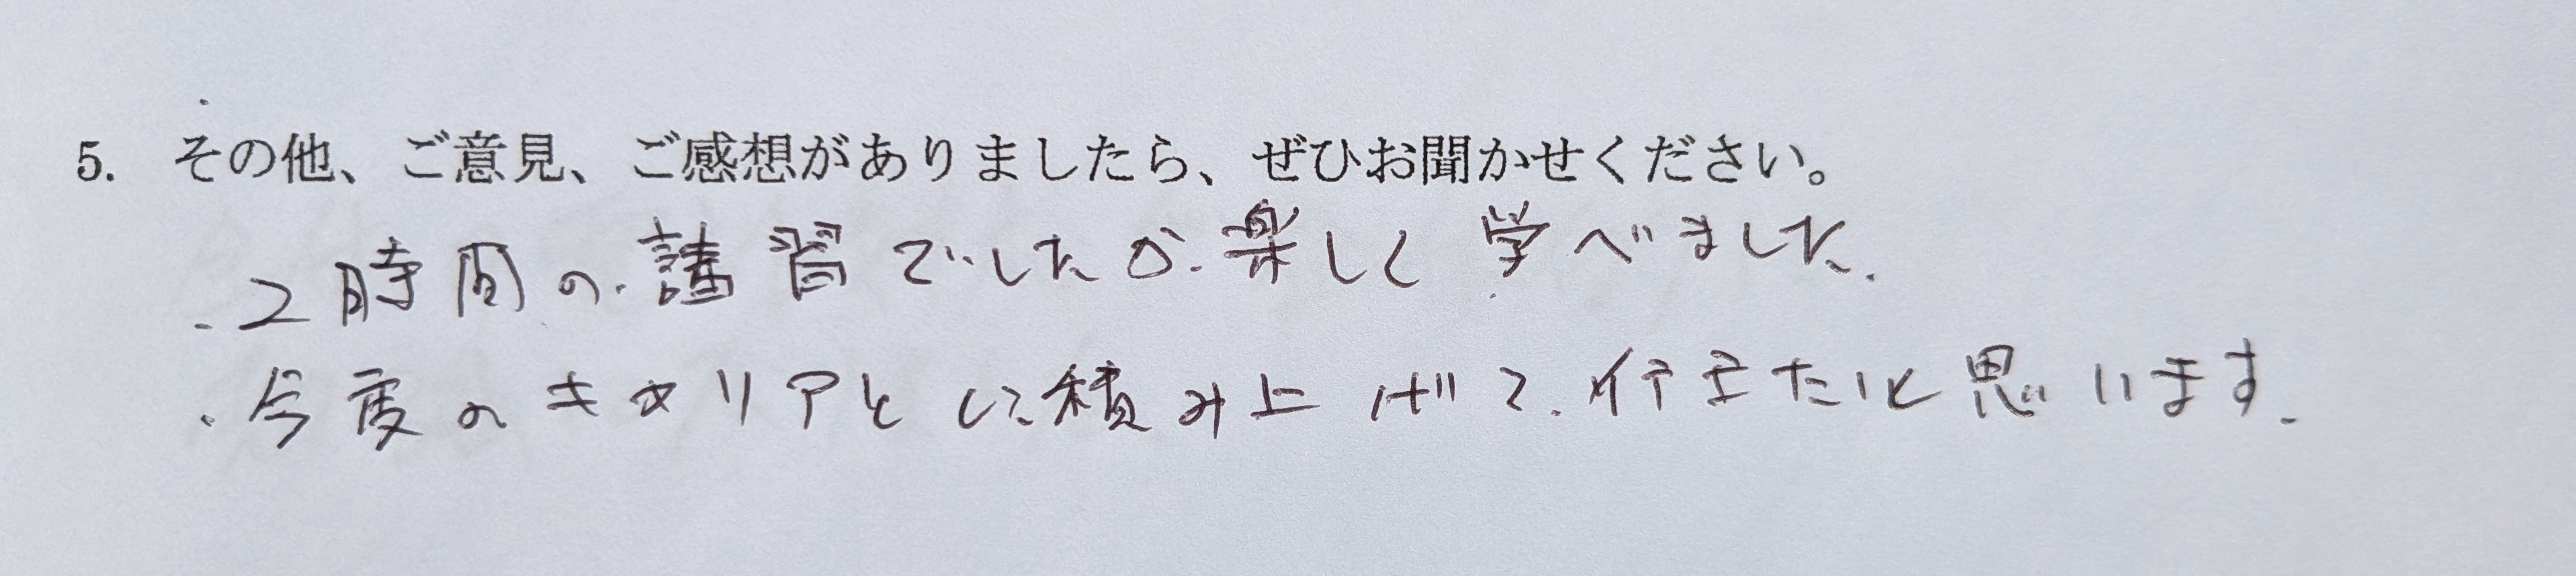 5. その他、ご意見、ご感想がありましたら、ぜひお聞かせください。
・2時間の講習でしたが楽しく学べました.
・今度のキャリアとして積み上げて行きたいと思います.